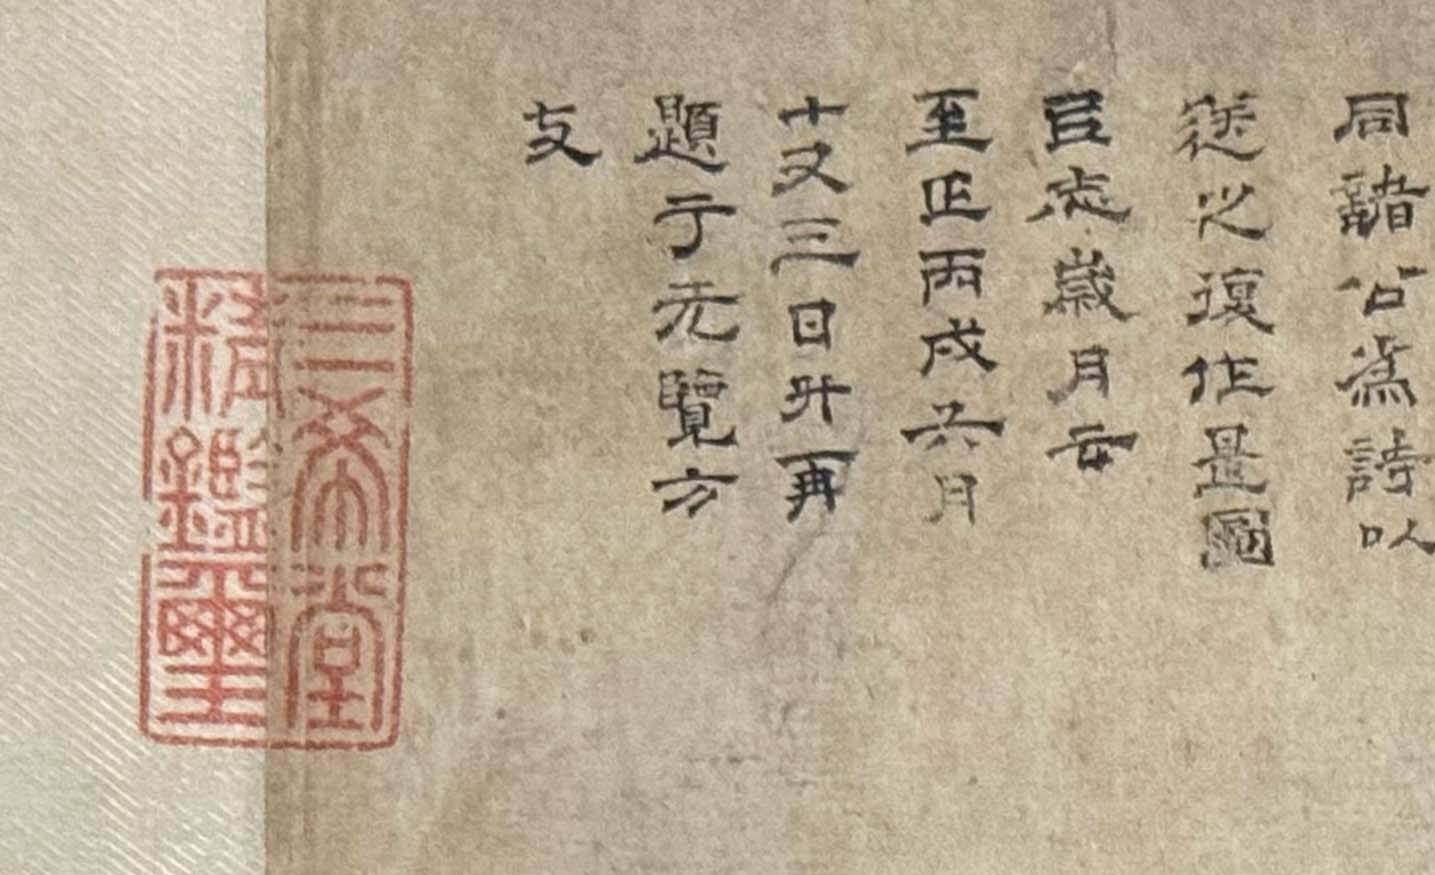 同諸公為詩以
送之復作是圖
㠯志歲月云
至正丙戌六月
十又三日升再
題于无覽方
丈
三希堂
精鑑璽